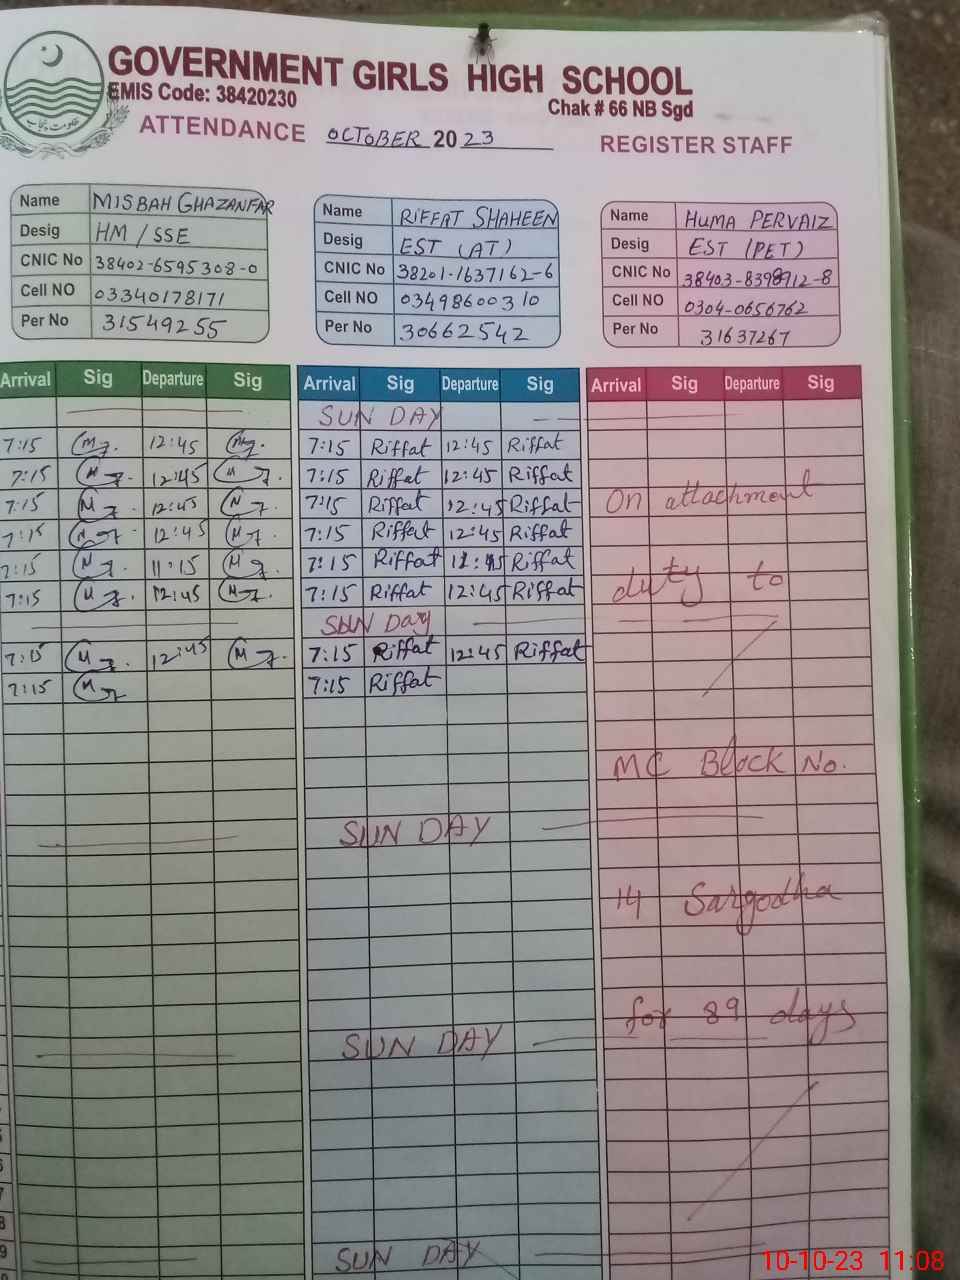 GOVERNMENT GIRLS HIGH SCHOOL
EMIS Code: 38420230
Chak # 66 NB Sgd
حکومت پنجاب
ATTENDANCE OCTOBER 2023 REGISTER STAFF
Name MISBAH GHAZANFAR
Desig HM / SSE
CNIC No 38402-6595308-0
Cell NO 03340178171
Per No 31549255
Name RIFFAT SHAHEEN
Desig EST (AT)
CNIC No 38201-1637162-6
Cell NO 03498600310
Per No 30662542
Name HUMA PERVAIZ
Desig EST (PET)
CNIC No 38403-8398912-8
Cell NO 0304-0656762
Per No 31637267
Arrival Sig Departure Sig Arrival Sig Departure Sig Arrival Sig Departure Sig
SUN DAY
7:15 12:45 7:15 Riffat 12:45 Riffat
7:15 12:45 7:15 Riffat 12:45 Riffat
7:15 12:45 7:15 Riffat 12:45 Riffat
On attachment
7:15 12:45 7:15 Riffat 12:45 Riffat
7:15 11:15 7:15 Riffat Riffat
7:15 12:45 7:15 Riffat 12:45 Riffat
duty to
SUN Day
7:15 12:45 7:15 Riffat 12:45 Riffat
7:15 7:15 Riffat
MC Block No.
SUN DAY
14 Sargodha
for 89 days
SUN DAY
SUN DAY
10-10-23 11:08